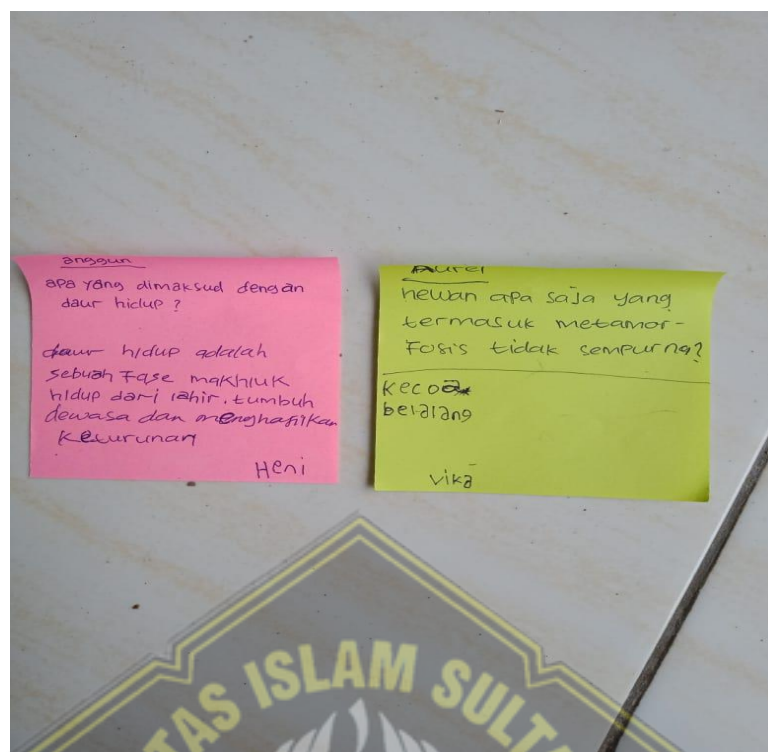 anggun
apa yang dimaksud dengan
daur hidup ?
daur hidup adalah
sebuah Fase makhluk
hidup dari lahir, tumbuh
dewasa dan menghasilkan
keturunan
Heni
Aurel
hewan apa saja yang
termasuk metamor-
Fosis tidak sempurna?
kecoa
belalang
vika
TAS ISLAM SULT